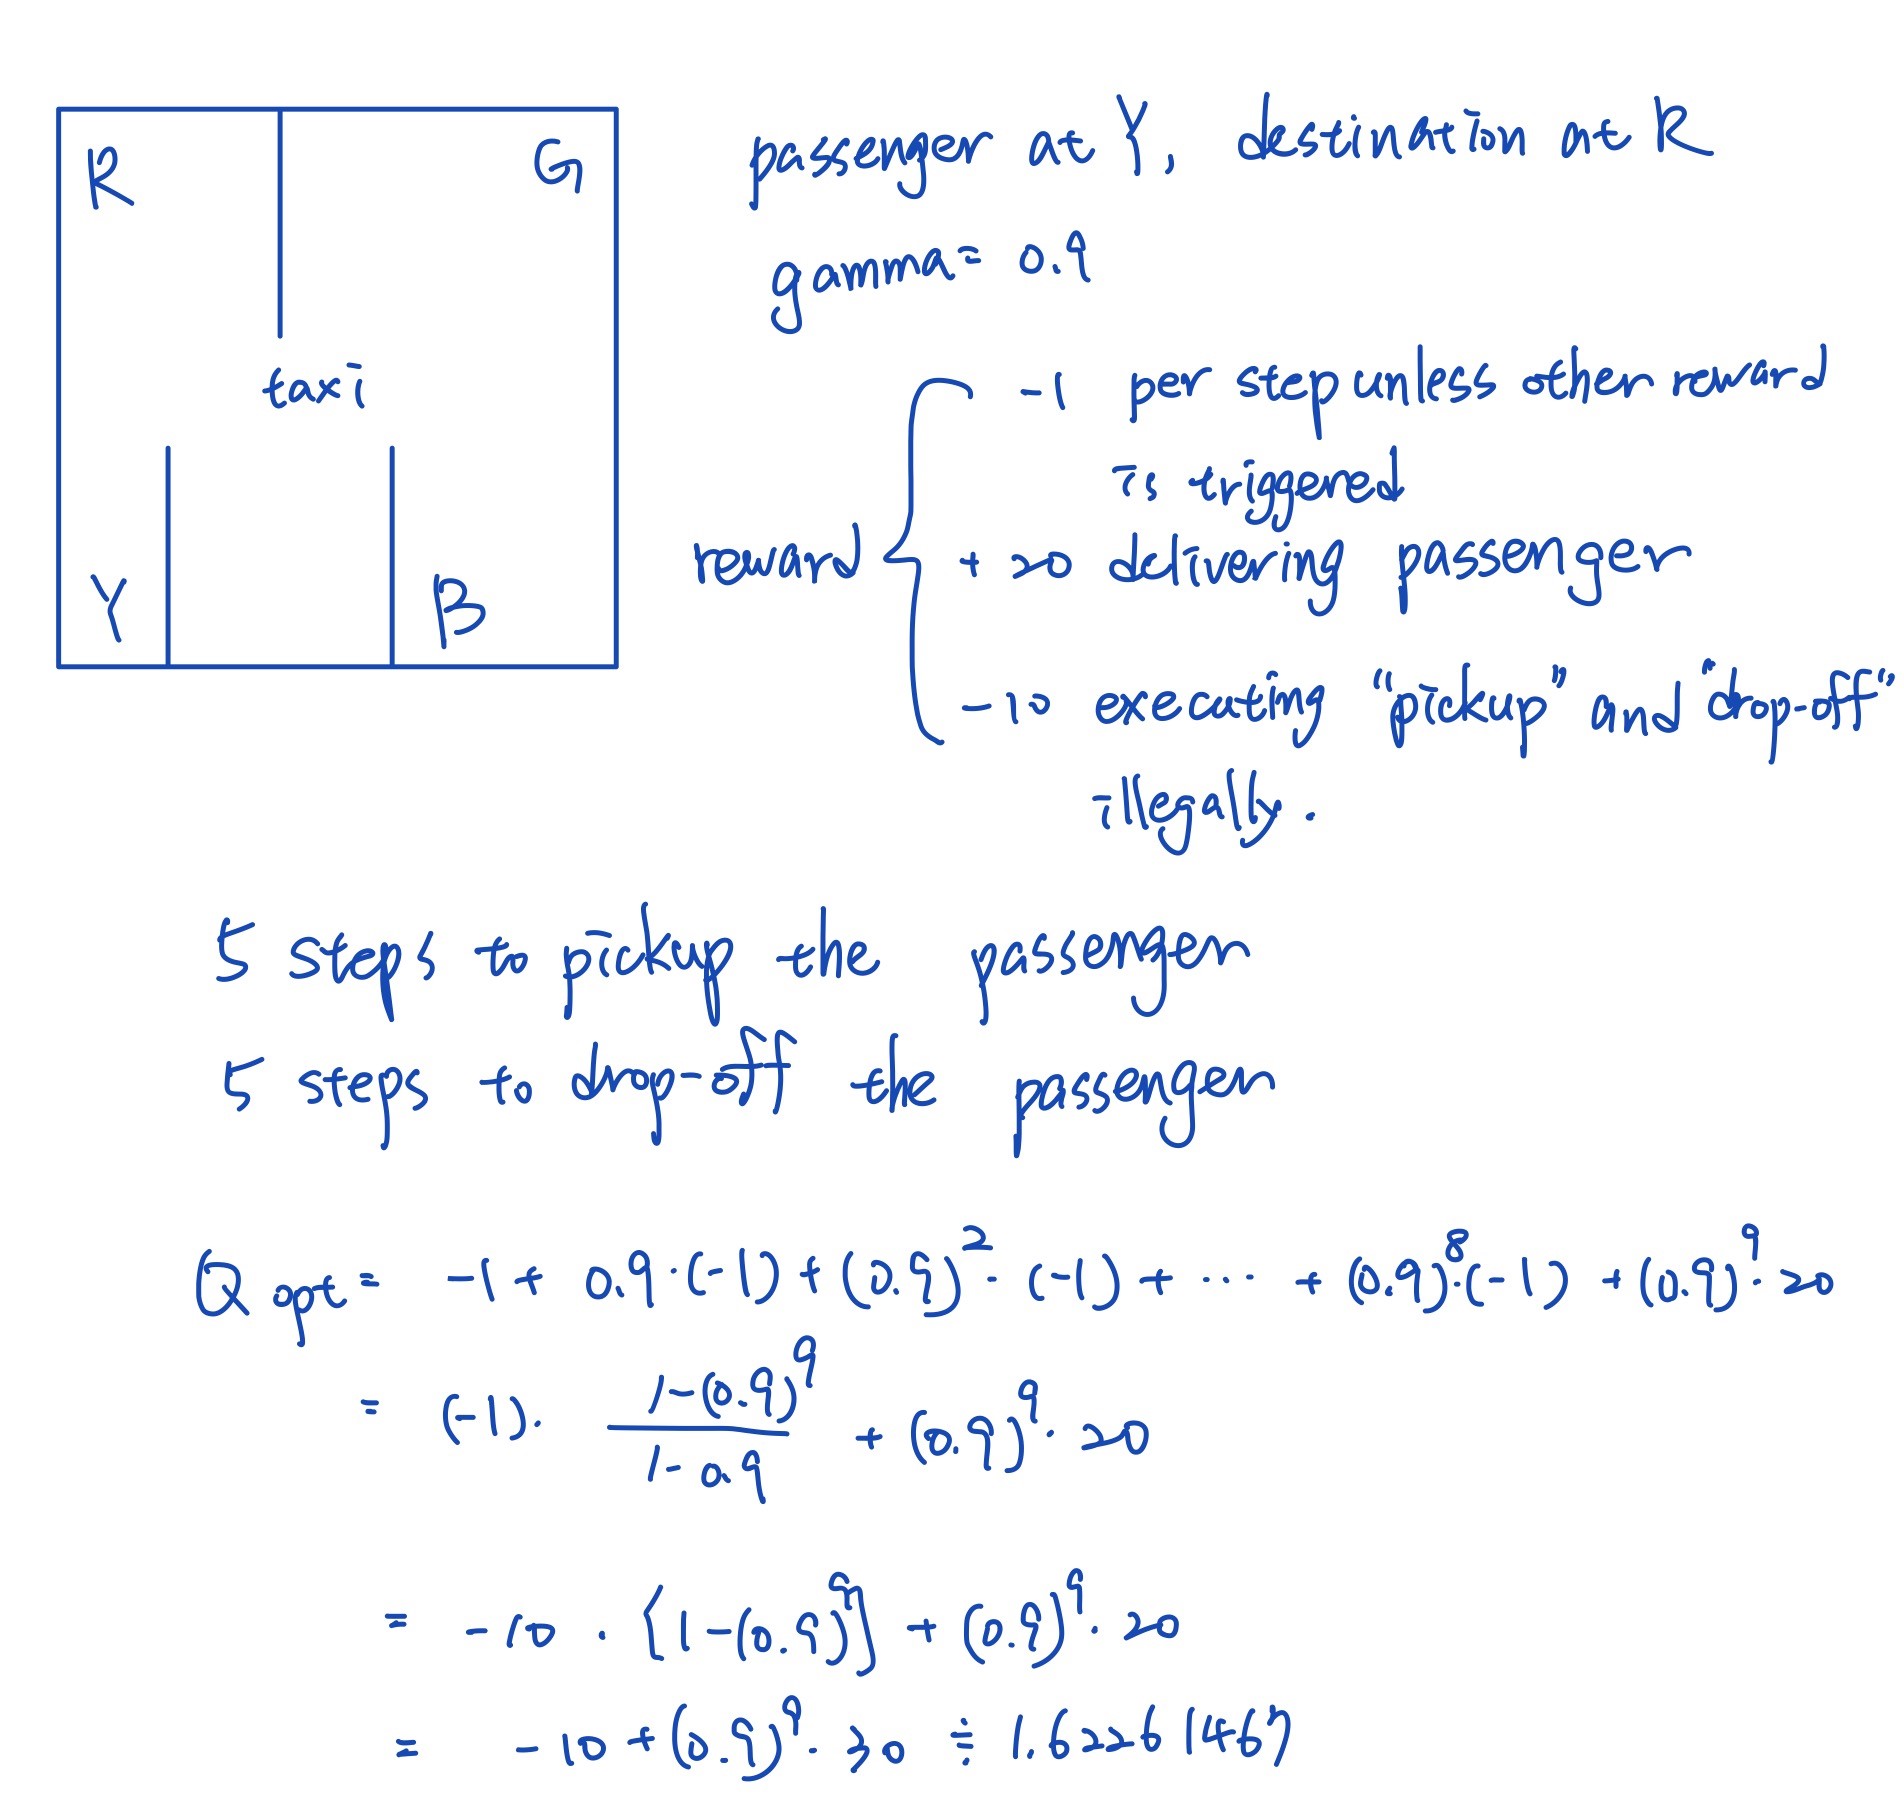 R G
passenger at Y, destination at R
gamma = 0.9
taxi
-1 per step unless other reward
is triggered
reward + 20 delivering passenger
Y B
-10 executing "pickup" and "drop-off"
illegally.
5 steps to pickup the passenger
5 steps to drop-off the passenger
Q opt = -1 + 0.9·(-1) + (0.9)²·(-1) + ··· + (0.9)⁸·(-1) + (0.9)⁹·20
= (-1)· (1-(0.9)⁹)/(1-0.9) + (0.9)⁹·20
= -10 · {1-(0.9)⁹} + (0.9)⁹·20
= -10 + (0.9)⁹·30 ≑ 1.62261467